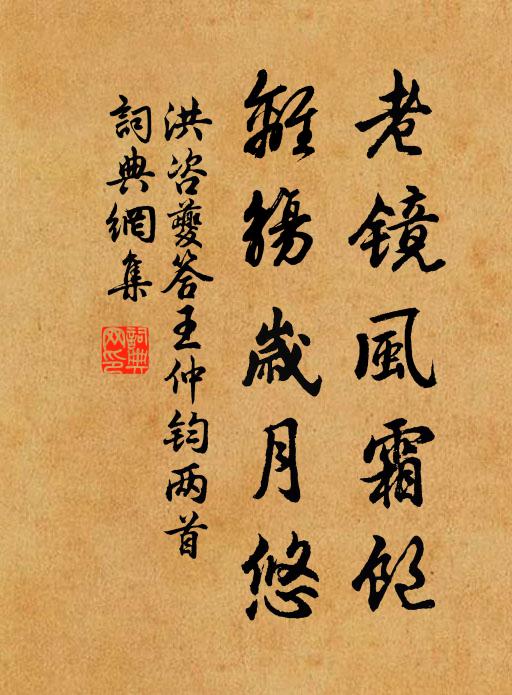 老鏡風霜飽
離觴歲月悠
洪咨夔答王仲鈞两首
詞典網集
詞典网印